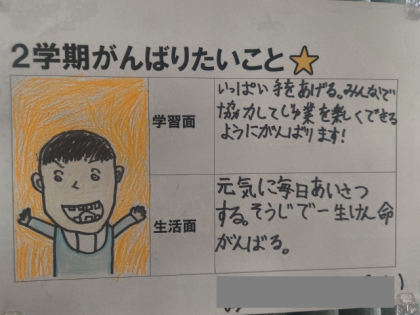 2学期がんばりたいこと
学習面
いっぱい手をあげる。みんなで
協力してじゅ業を楽しくできる
ようにがんばります!
生活面
元気に毎日あいさつ
する。そうじで一生けん命
がんばる。